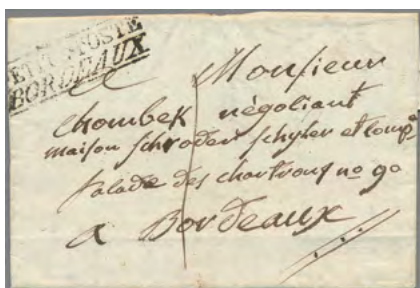 PETITE POSTE
BORDEAUX
A Monsieur
Chombek négociant
maison Schroder Schyler et Comp.e
falade des chartrons no 90
a Bordeaux